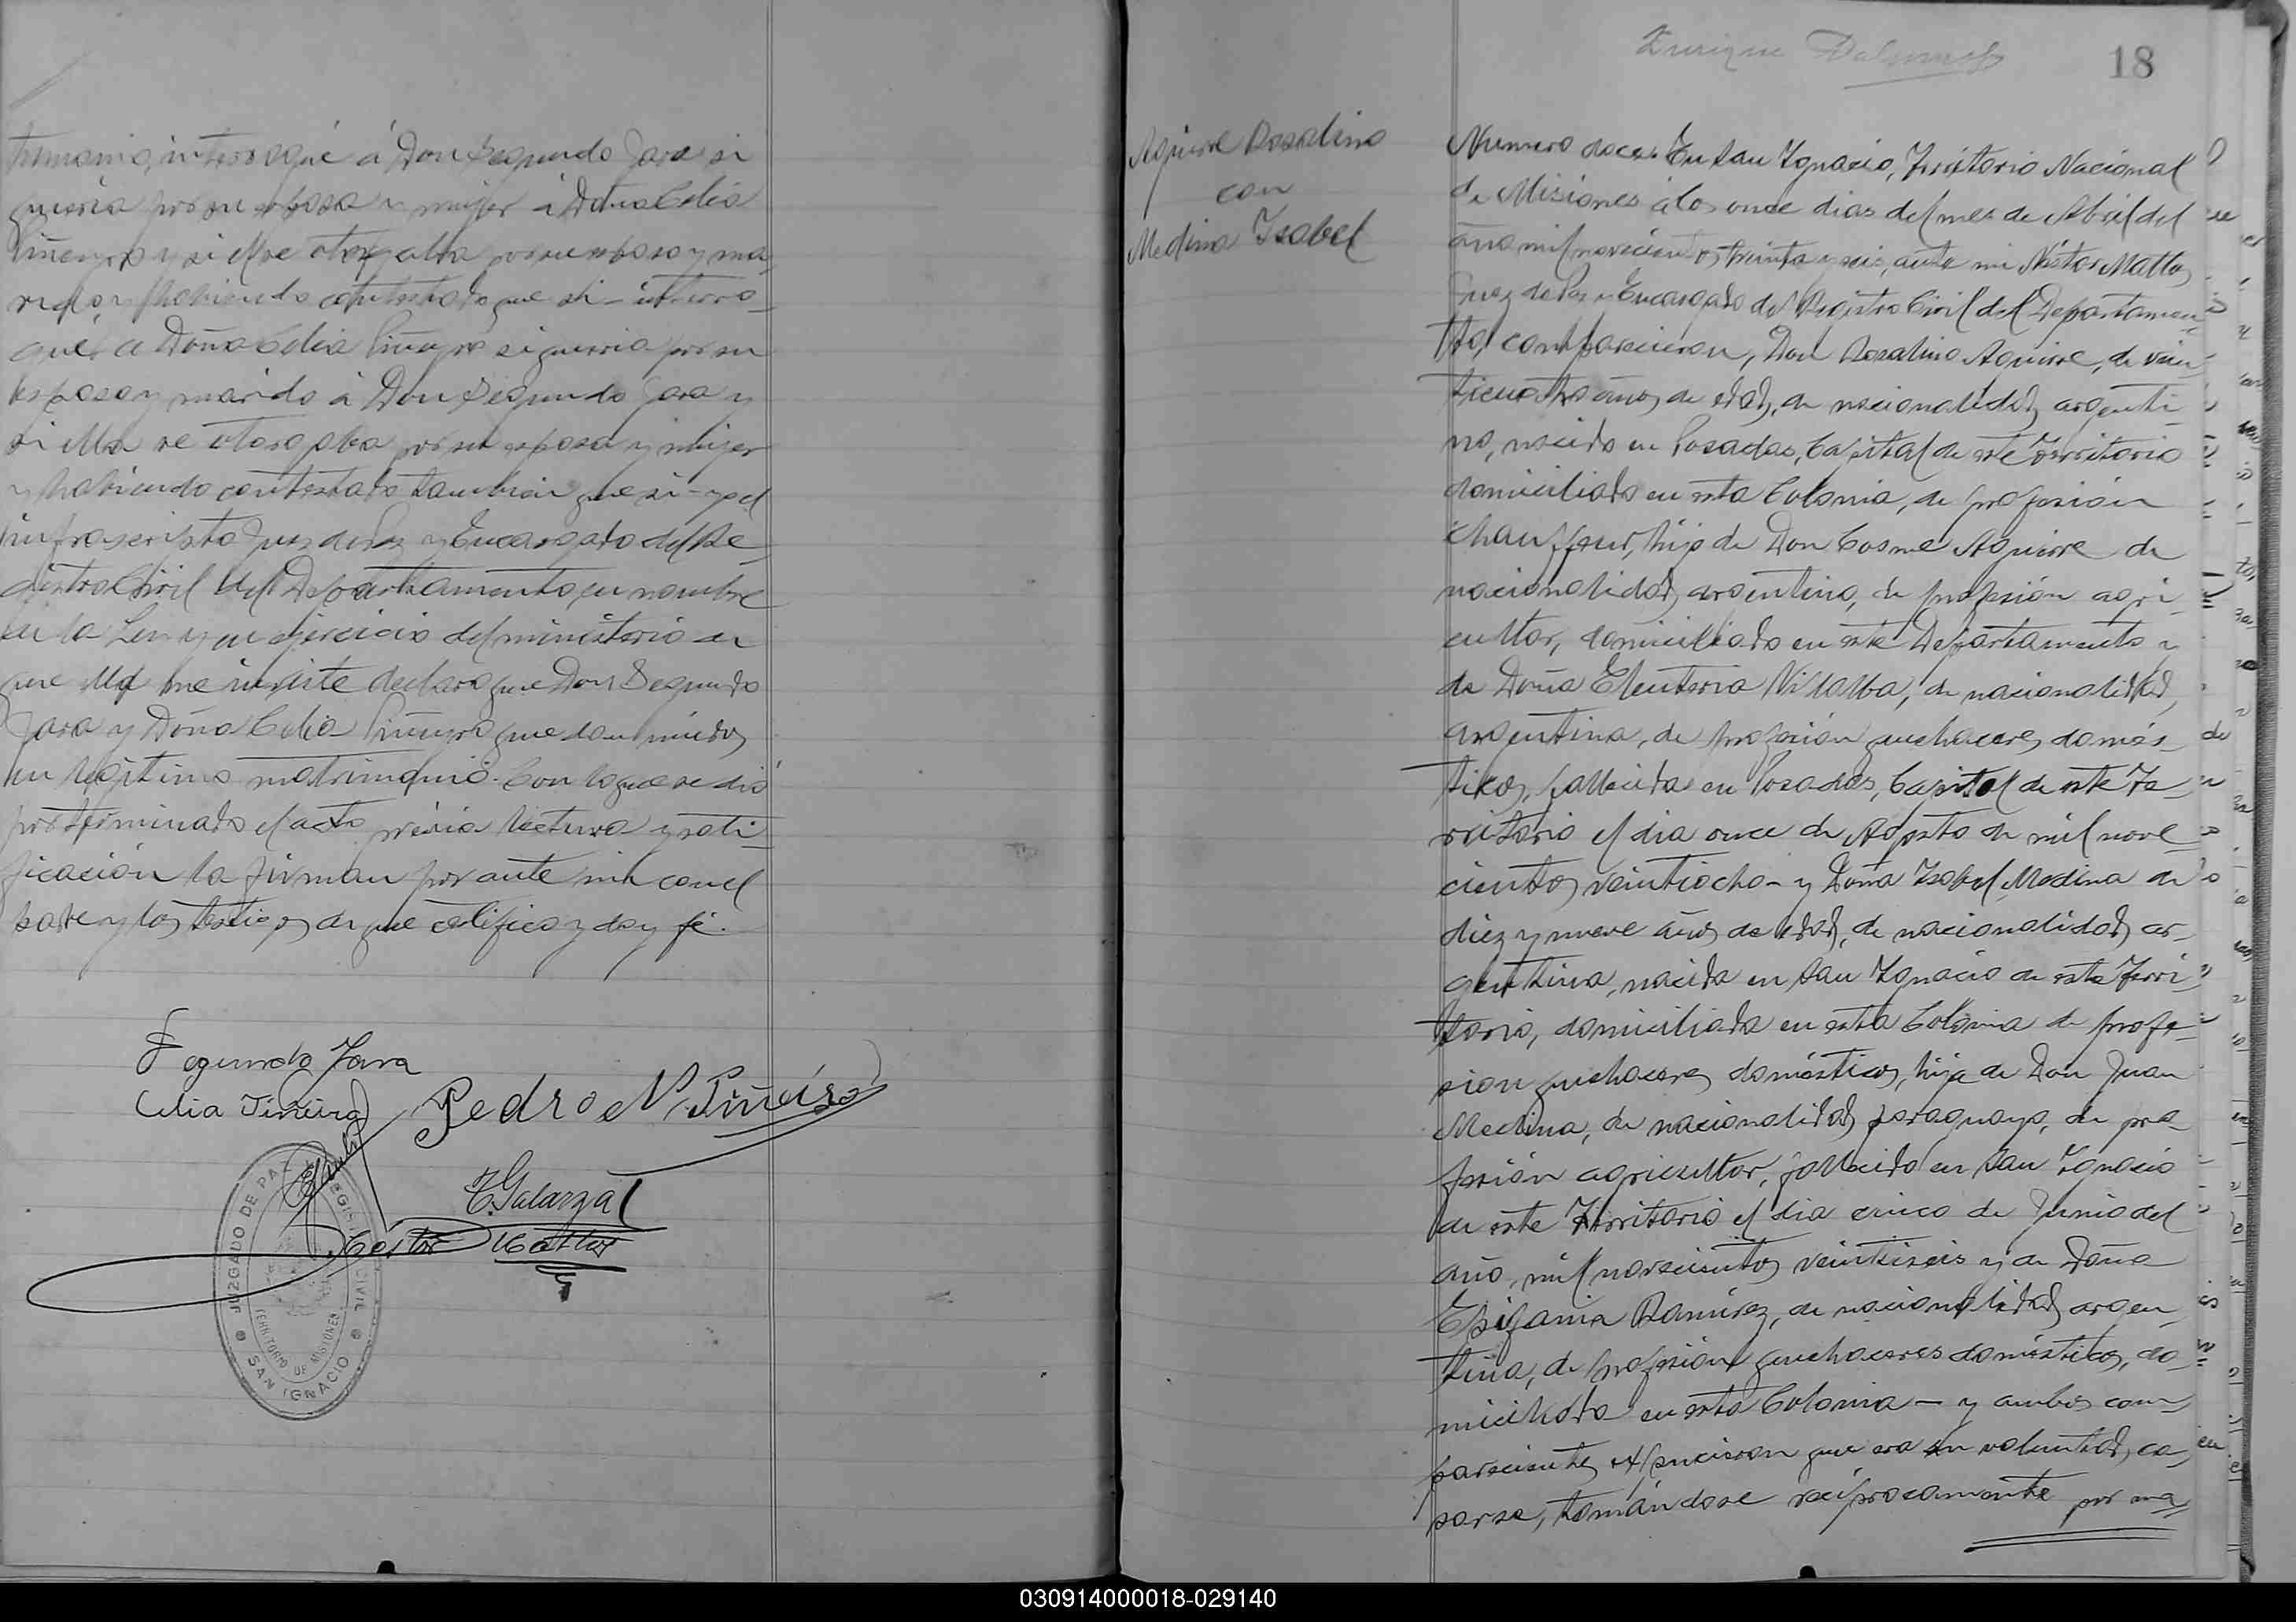 trimonio, interrogué á Don Segundo Jara si
quería por su esposa y mujer á Doña Celia
Piñeyro y si el se otorgaba por su esposo y ma-
rido, y habiendo contestado que si - interro-
gué a Doña Celia Piñeyro si queria por su
esposo y marido á Don Segundo Jara y
si ella se otorgaba por su esposa y mujer
y habiendo contestado tambien que si - yo el
infrascripto Juez de Paz y Encargado del Re-
gistro Civil del Departamento, en nombre
de la Ley y en ejercicio del ministerio de
que ella me inviste declaro que Don Segundo
Jara y Doña Celia Piñeyro quedan unidos
en legitimo matrimonio. Con lo que se dió
por terminado el acto prévia lectura y rati-
ficación la firman por ante mi con el
padre y los testigos de que certifico y doy fé.
Segundo Jara
Celia Piñeiro
Pedro N. Piñeiro
Galarza
Néstor Mattos
JUZGADO DE PAZ Y REGISTRO CIVIL
TERRITORIO DE MISIONES
SAN IGNACIO
Enrique
18
Aguirre Rosalino
con
Medina Isabel
Numero doce. En San Ignacio, Territorio Nacional
de Misiones á los once dias del mes de Abril del
año mil novecientos treinta y seis, ante mi Néstor Mattos
Juez de Paz y Encargado del Registro Civil del Departamen-
to, comparecieron, Don Rosalino Aguirre, de vein-
ticuatro años de edad, de nacionalidad argenti-
no, nacido en Posadas, Capital de este Territorio
domiciliado en esta Colonia, de profesión
chauffeur, hijo de Don Cosme Aguirre de
nacionalidad argentino, de profesión agri-
cultor, domiciliado en este Departamento y
de Doña Eleuteria Villalba, de nacionalidad
argentina, de profesión quehaceres domés-
ticos, fallecida en Posadas, Capital de este Te-
rritorio el dia once de Agosto de mil nove-
cientos veintiocho - y Doña Isabel Medina de
diez y nueve años de edad, de nacionalidad ar-
gentina, nacida en San Ignacio de este Terri-
torio, domiciliada en esta Colonia de profe-
sion quehaceres domésticos, hija de Don Juan
Medina, de nacionalidad paraguayo, de pro-
fesión agricultor, fallecido en San Ignacio
de este Territorio el dia cinco de Junio del
año mil novecientos veintiseis y de Doña
Epifania Ramírez, de nacionalidad argen-
tina, de profesion quehaceres domésticos, do-
miciliada en esta Colonia - y ambos com-
parecientes expusieron que era su voluntad, ca-
sarse, tomándose recíprocamente por ma-
030914000018-029140